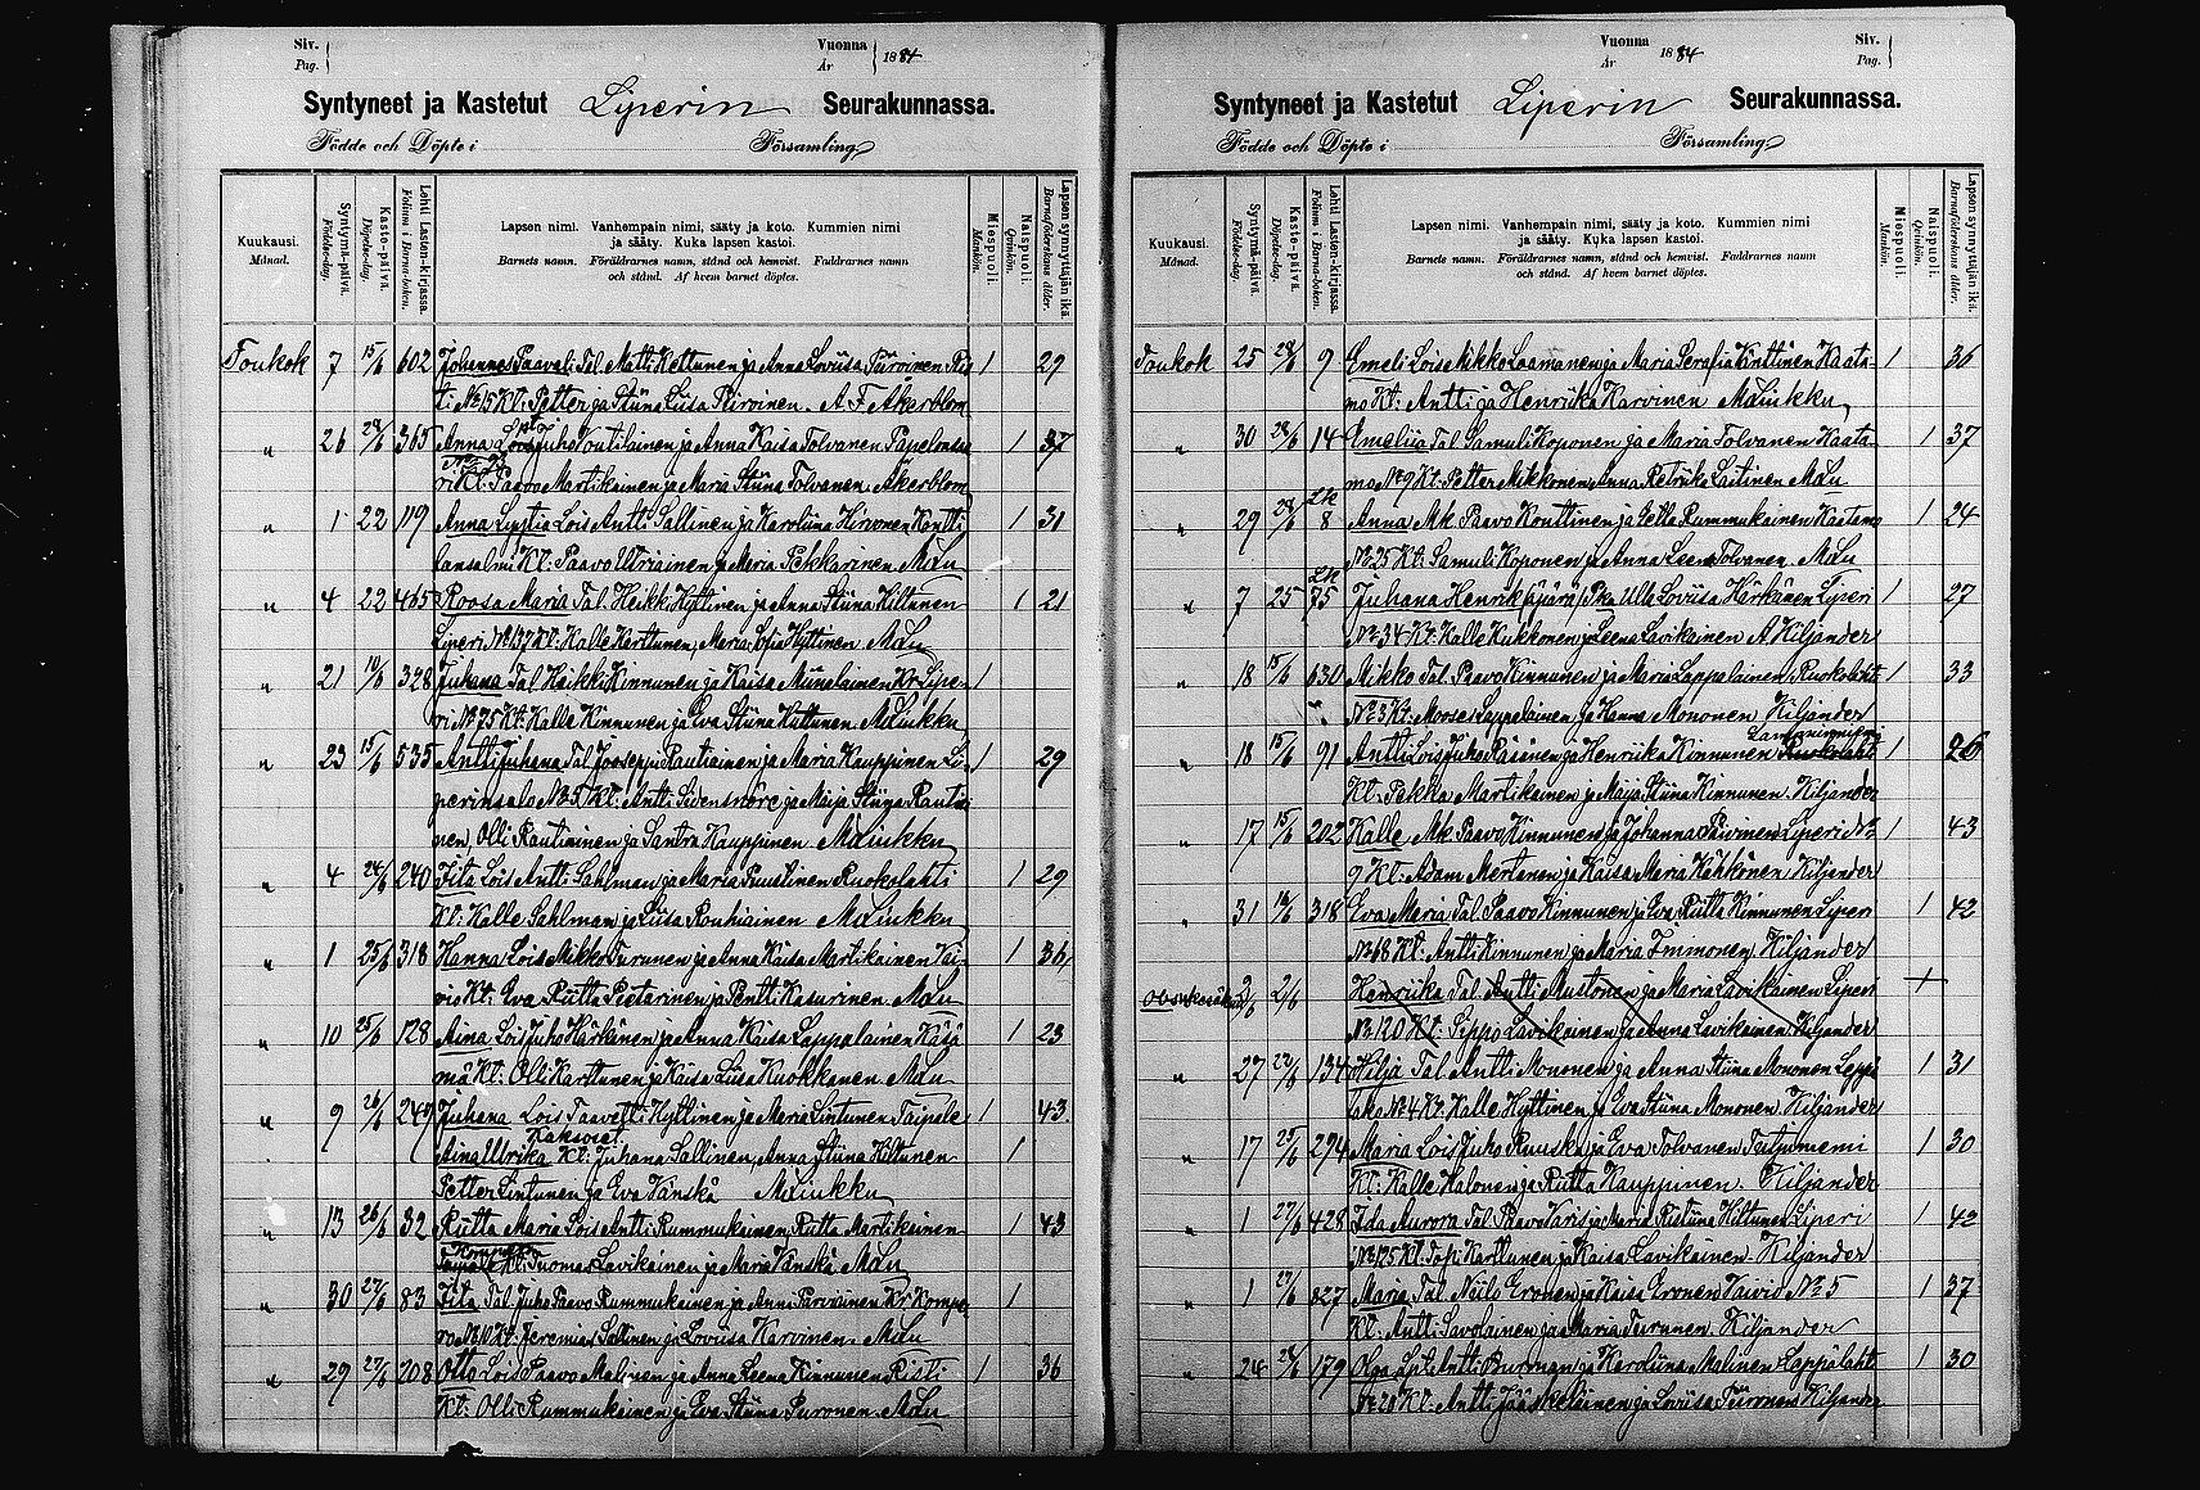 Siv.
Pag.
Vuonna
År
1884
Syntyneet ja Kastetut Liperin Seurakunnassa.
Födde och Döpte i Församling
Kuukausi.
Månad.
Syntymä-päivä.
Födelse-dag.
Kaste-päivä.
Döpelse-dag.
Lehti Lasten-kirjassa.
Folium i Barna-boken.
Lapsen nimi. Vanhempain nimi, sääty ja koto. Kummien nimi
ja sääty. Kuka lapsen kastoi.
Barnets namn. Föräldrarnes namn, stånd och hemvist. Faddrarnes namn
och stånd. Af hvem barnet döptes.
Miespuoli.
Mankön.
Naispuoli.
Qvinkön.
Lapsen synnyttäjän ikä
Barnaföderskans ålder.
Toukok 7 15/6 602 Johannes Paavali Tal. Matti Kettunen ja Anna Loviisa Piiroinen Ris 1 29
ti No 15 Kt: Petter ja Stiina Liisa Piiroinen. A. F. Åkerblom
" 26 28/6 365 Anna Juho Voutilainen ja Anna Kaisa Tolvanen 1 37
ri Kt: Paavo Martikainen ja Maria Stiina Tolvanen. Åkerblom
" 1 22 119 Anna Lois Antti Sallinen ja Karoliina Hirvonen Kontti 1 31
lansalmi Kt: Paavo Utriainen ja Maria Pekkarinen. MLu
" 4 22 465 Roosa Maria Tal. Heikki Hyttinen ja Anna Stiina Hiltunen 1 21
Liperi No 137 Kt: Kalle Karttunen, Maria Sofia Hyttinen MLu
" 21 10/6 328 Juhana Tal Heikki Kinnunen ja Kaisa Miinalainen Kr Lipe- 1
ri No 75 Kt: Kalle Kinnunen ja Eva Stiina Huttunen MLiukku
" 23 15/6 535 Antti Juhana Tal Jooseppi Rautiainen ja Maria Kauppinen Li- 1 29
perinsalo No 5 Kt: Antti Sidensnöre ja Maija Stiina Rautiai
nen, Olli Rautiainen ja Santra Kauppinen MLiukku
" 4 24/6 240 Iita Lois Antti Sahlman ja Maria Puustinen Ruokolahti 1 29
Kt: Kalle Sahlman ja Liisa Rouhiainen MLiukku
" 1 25/6 318 Hanna Lois Mikko Turunen ja Anna Kaisa Martikainen Vai- 1 36
vio Kt: Eva Riitta Pietarinen ja Pentti Kasurinen MLu
" 10 25/6 128 Aina Lois Juho Härkänen ja Anna Kaisa Lappalainen Käsä 1 23
mä Kt: Olli Karttunen ja Kaisa Liisa Kuokkanen MLu
" 9 26/6 249 Juhana Lois Taavetti Hyttinen ja Maria Lintunen Taipale 1 43
Kaksoset
Aina Ulrika Kt: Juhana Sallinen, Anna Stiina Hiltunen 1
Petter Lintunen ja Eva Vänskä MLiukku
" 13 26/6 32 Riitta Maria Lois Antti Rummukainen, Riitta Martikainen 1 43
Taipale Kt: Tuomas Lavikainen ja Maria Vänskä MLu
" 30 27/6 83 Iita Tal. Juho Paavo Rummukainen ja Anni Parviainen Kr Kompe 1
ro No 10 Kt: Jeremias Sallinen ja Loviisa Karvinen. MLu
" 29 27/6 208 Otto Lois Paavo Malinen ja Anna Leena Kinnunen Risti 1 36
Kt: Olli Rummukainen ja Eva Stiina Puronen MLu
Vuonna
År
1884
Siv.
Pag.
Syntyneet ja Kastetut Liperin Seurakunnassa.
Födde och Döpte i Församling
Kuukausi.
Månad.
Syntymä-päivä.
Födelse-dag.
Kaste-päivä.
Döpelse-dag.
Lehti Lasten-kirjassa.
Folium i Barna-boken.
Lapsen nimi. Vanhempain nimi, sääty ja koto. Kummien nimi
ja sääty. Kuka lapsen kastoi.
Barnets namn. Föräldrarnes namn, stånd och hemvist. Faddrarnes namn
och stånd. Af hvem barnet döptes.
Miespuoli.
Mankön.
Naispuoli.
Qvinkön.
Lapsen synnyttäjän ikä.
Barnaföderskans ålder.
Toukok 25 28/6 9 Emeli Lois Mikko Laamanen ja Maria Serafia Kinttinen Kaata- 1 36
mo Kt: Antti ja Henriika Karvinen MLiukku
" 30 28/6 14 Emeliia Tal Samuli Koponen ja Maria Tolvanen Kaata 1 37
mo No 9 Kt: Petter Mikkonen, Anna Retriika Laitinen MLu
" 29 28/6 Lk 8 Anna Mk. Paavo Konttinen ja Rummukainen Kaatamo 1 24
No 25 Kt: Samuli Koponen ja Anna Leena Tolvanen. MLu
" 7 25 Lk 75 Juhana Henrik (äpärä) Pka Ulla Loviisa Härkänen Liperi 1 27
No 34 Kt: Kalle Kukkonen ja Leena Lavikainen A Kiljander
" 18 15/6 630 Mikko Tal. Paavo Kinnunen ja Maria Lappalainen Ruokolaht 1 33
No 3 Kt: Mooses Lappalainen ja Hanna Mononen Kiljander
" 18 15/6 91 Antti Lois Juho Räsänen ja Henriika Kinnunen Ruokolahti 1 26
Kt: Pekka Martikainen ja Maija Stiina Kinnunen. Kiljander
" 17 15/6 202 Kalle Mk. Paavo Kinnunen ja Johanna Päivinen Liperi No 1 43
9 Kt: Adam Mertanen ja Kaisa Maria Kähkönen Kiljander
" 31 16/6 318 Eva Maria Tal. Paavo Kinnunen ja Eva Riitta Kinnunen Liperi 1 42
No 68 Kt: Antti Kinnunen ja Maria Immonen, Kiljander
2/6 2/6 Henriika Tal. Antti Mustonen ja Maria Lavikainen Liperi
No 120 Kt: Seppo Lavikainen ja Anna Lavikainen. Kiljander
" 27 22/6 134 Hilja Tal. Antti Mononen ja Anna Stiina Mononen Leppä 1 31
laks No 4 Kt: Kalle Hyttinen ja Eva Stiina Mononen. Kiljander
" 17 25/6 274 Maria Lois Juho Ruuska ja Eva Tolvanen 1 30
Kt: Kalle Halonen ja Riitta Kauppinen. Kiljander
" 1 27/6 428 Ida Aurora Tal. Paavo Varis ja Maria Ristiina Hiltunen Liperi 1 42
No 125 Kt: Karttunen ja Kaisa Lavikainen. Kiljander
" 1 27/6 827 Maria Tal. Niilo Eronen ja Kaisa Eronen Vaivio No 5 1 37
Kt: Antti Savolainen ja Maria Turunen. Kiljander
" 24 28/6 179 Olga Antti Burman ja Karoliina Malinen Lappälaht 1 30
No 20 Kt: Antti Jääskeläinen ja Loviisa Piironen Kiljander